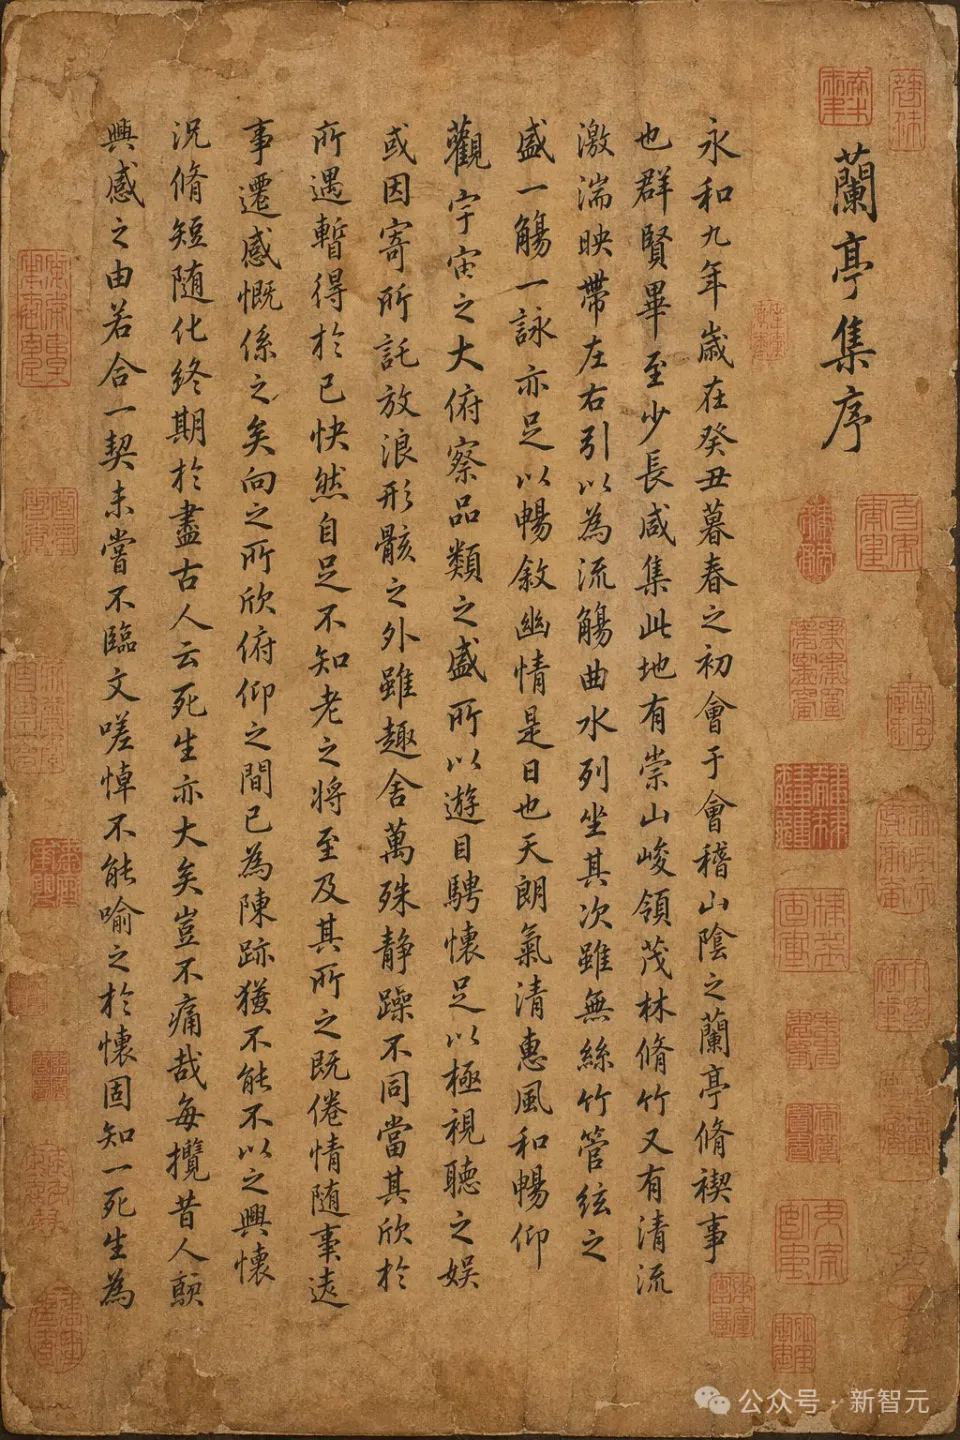 蘭亭集序
永和九年歲在癸丑暮春之初會于會稽山陰之蘭亭脩禊事
也群賢畢至少長咸集此地有崇山峻領茂林脩竹又有清流
激湍映帶左右引以為流觴曲水列坐其次雖無絲竹管絃之
盛一觴一詠亦足以暢敘幽情是日也天朗氣清惠風和暢仰
觀宇宙之大俯察品類之盛所以遊目騁懷足以極視聽之娛
或因寄所託放浪形骸之外雖趣舍萬殊静躁不同當其欣於
所遇暫得於己快然自足不知老之將至及其所之既倦情随事遠
事遷感慨係之矣向之所欣俯仰之間已為陳跡猶不能不以之興懷
況脩短随化終期於盡古人云死生亦大矣豈不痛哉每攬昔人
興感之由若合一契未嘗不臨文嗟悼不能喻之於懷固知一死生為
公众号·新智元